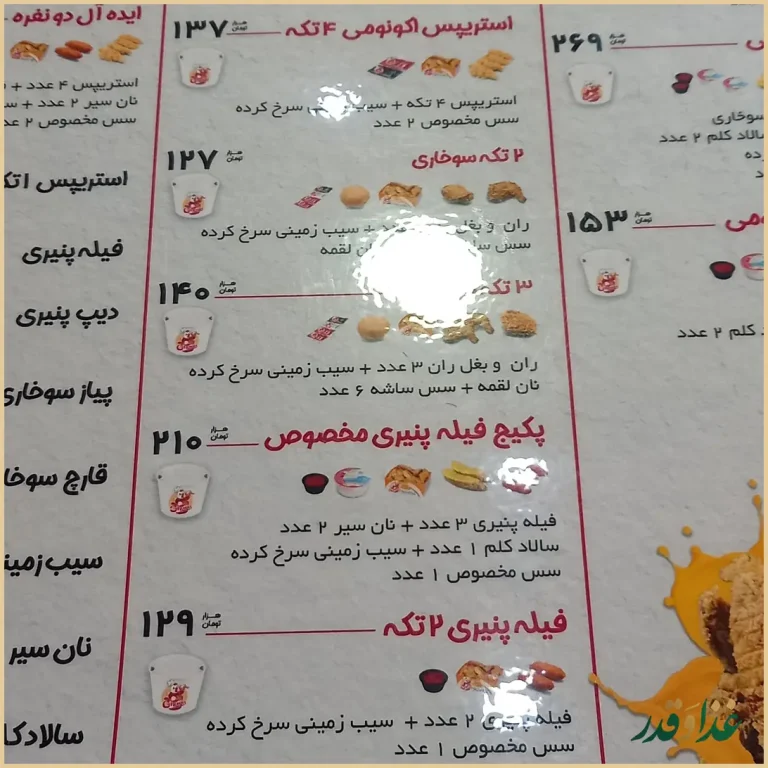 ۲۶۹ هزار تومان
سوخاری
کلم ۲ عدد
۱۵۳ هزار تومان
کلم ۲ عدد
استریپس اکونومی ۴ تکه ۱۳۷ هزار تومان
استریپس ۴ تکه + سرخ کرده
سس مخصوص ۲ عدد
۲ تکه سوخاری ۱۲۷ هزار تومان
ران و بغل + سیب زمینی سرخ کرده
سس لقمه
۳ ۱۴۰ هزار تومان
ران و بغل ران ۳ عدد + سیب زمینی سرخ کرده
نان لقمه + سس ساشه ۶ عدد
پکیج فیله پنیری مخصوص ۲۱۰ هزار تومان
فیله پنیری ۳ عدد + نان سیر ۲ عدد
سالاد کلم ۱ عدد + سیب زمینی سرخ کرده
سس مخصوص ۱ عدد
فیله پنیری ۲ تکه ۱۲۹ هزار تومان
فیله ۲ عدد + سیب زمینی سرخ کرده
سس مخصوص ۱ عدد
ایده آل دو نفره
استریپس ۴ عدد +
نان سیر ۲ عدد +
سس مخصوص ۲
استریپس ۱
فیله پنیری
دیپ پنیری
پیاز سوخاری
قارچ
سیب
نان سیر
سالاد
غذا قدر